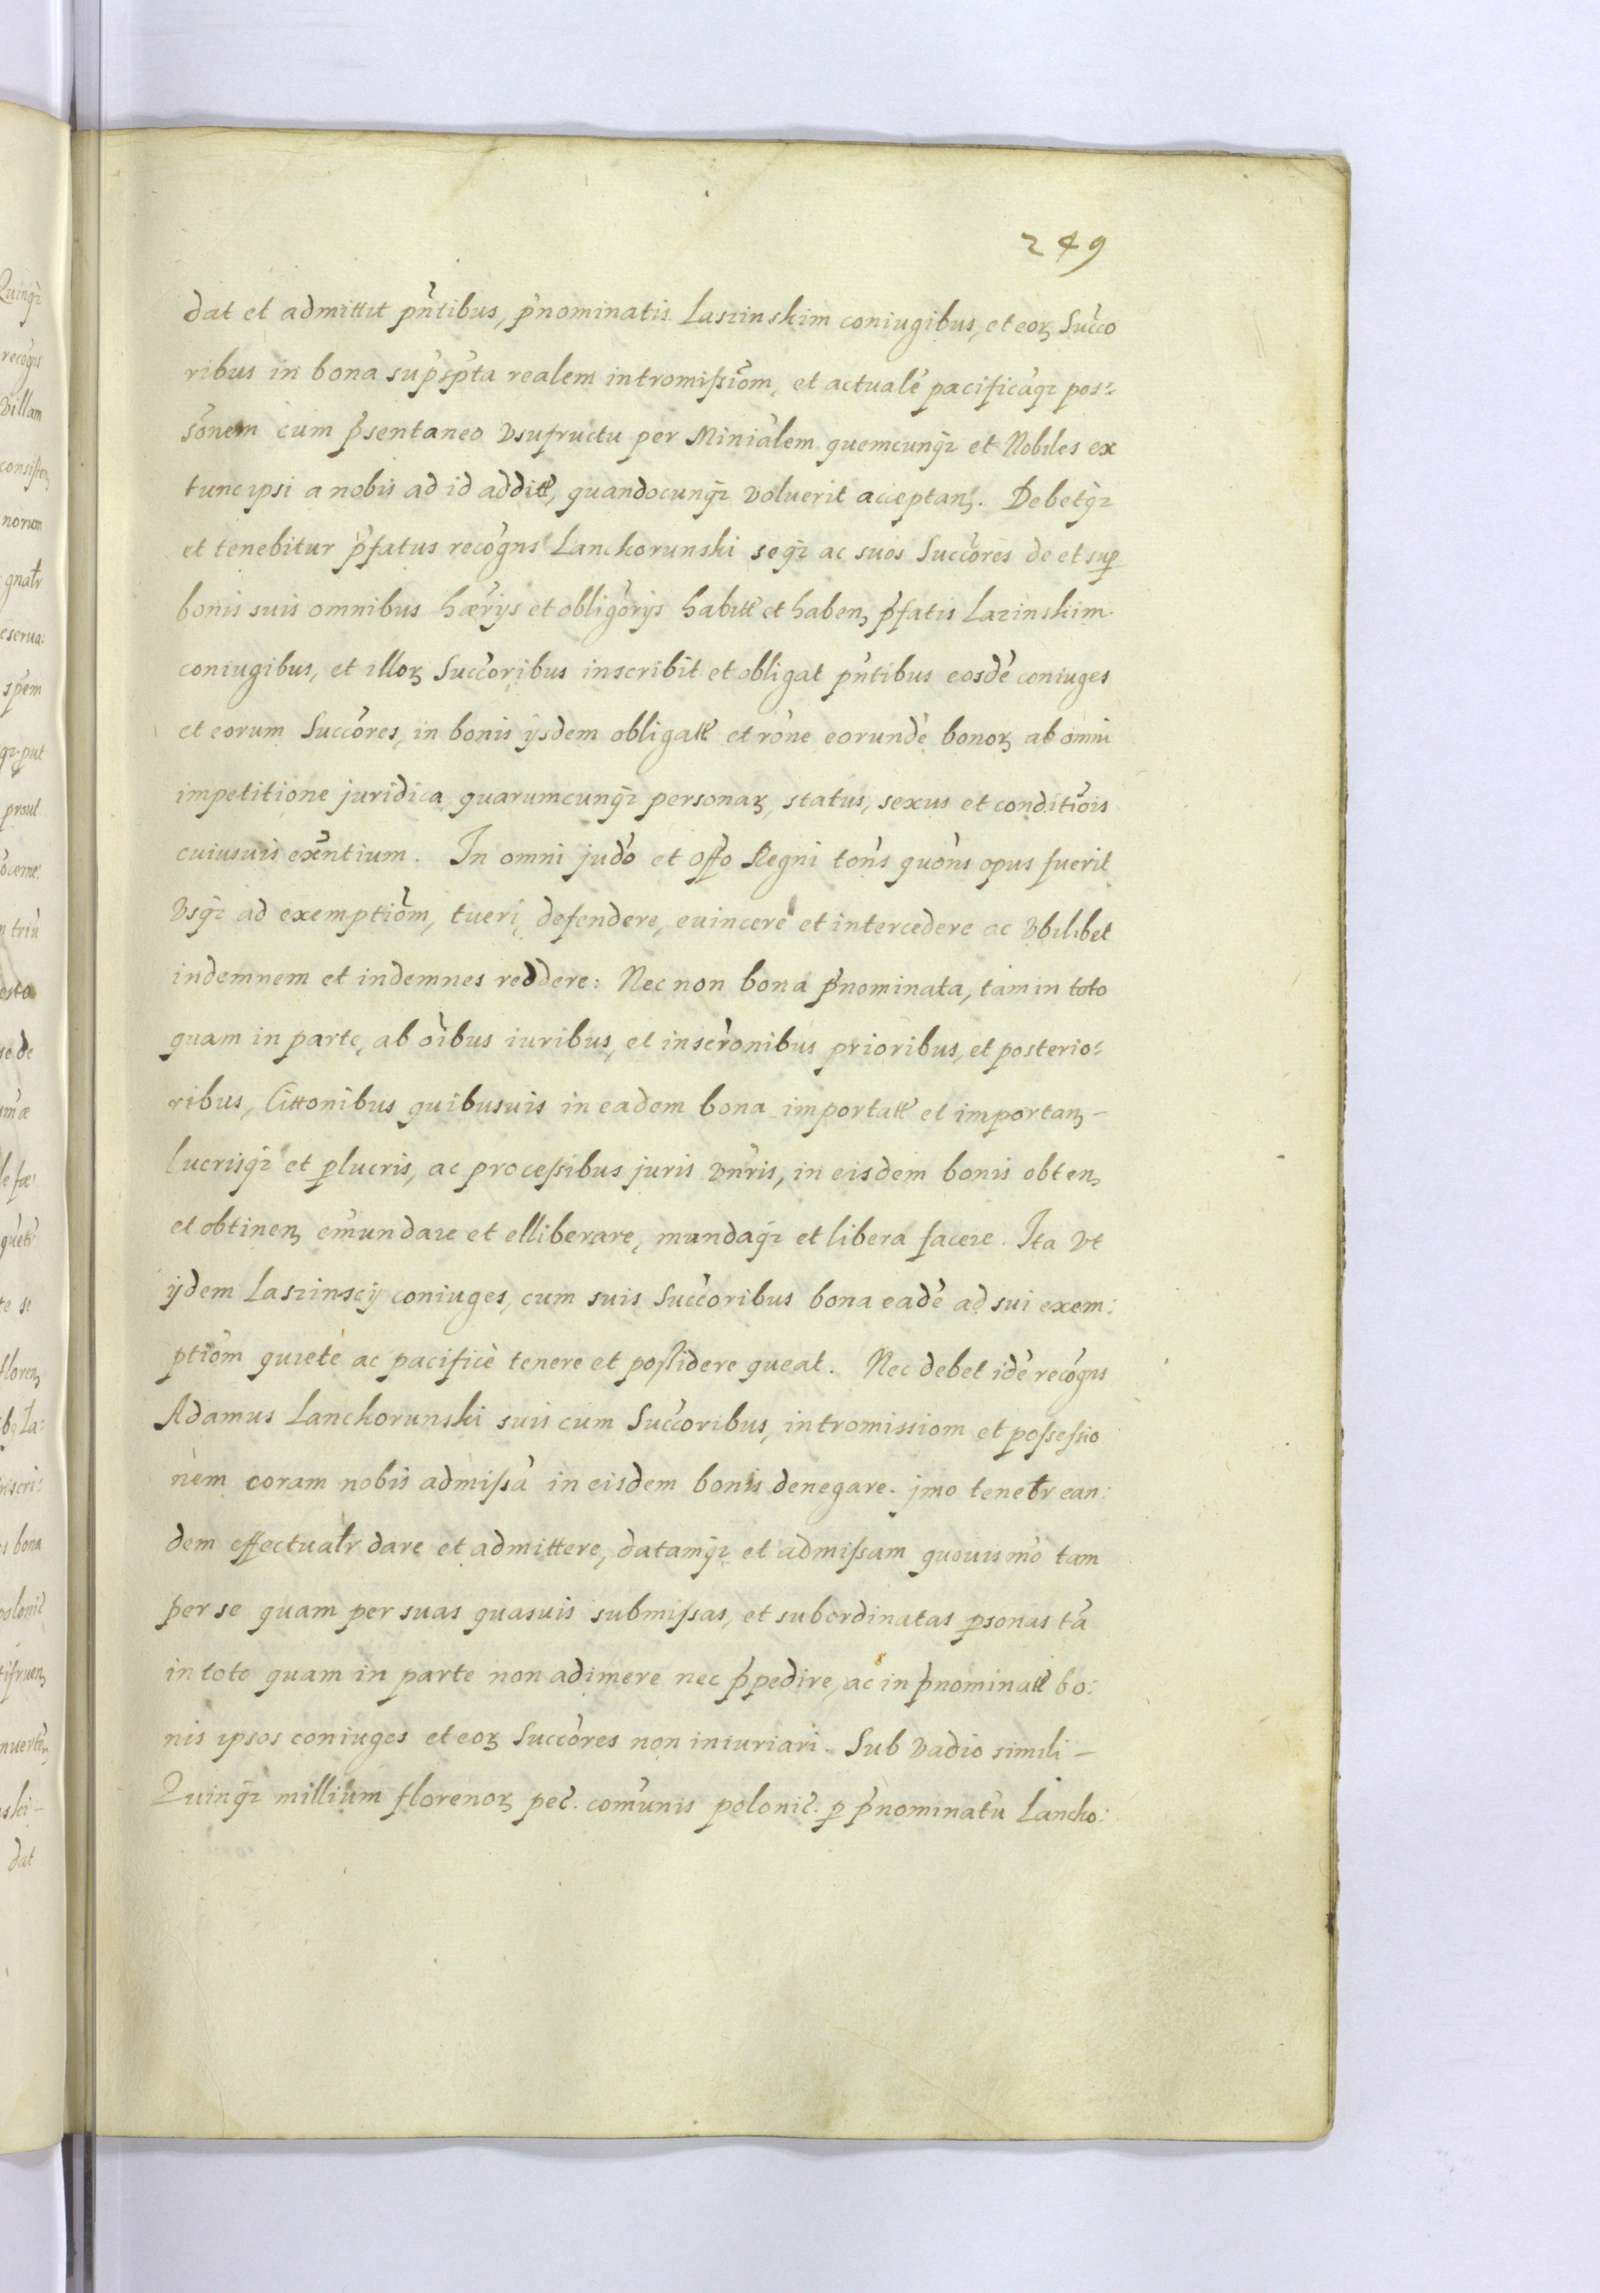 249
dat et admittit pñtibus, p̃nominatis Laszinskim coniugibus, et eoꝝ Succo
ribus in bona sup̃sp̃ta realem intromißiõm, et actualẽ pacificãqꝫ pos:
sõnem cum p̃sentaneo Vsufructu per Miniãlem quemcunqꝫ et Nobiles ex
tunc ipsi a nobis ad id additt, quandocunqꝫ Voluerit acceptanꝫ. Debetqꝫ
et tenebitur p̃fatus recõgns Lanckorunski seqꝫ ac suos Succõres de et sup
bonis suis omnibus hærijs et obligõrijs habitt et habenꝫ p̃fatis Lazinskim
coniugibus, et illoꝝ Succõribus inscribit et obligat pñtibus eosdẽ coniuges
et eorum Succõres, in bonis ijsdem obligatt et rõne eorundẽ bonoꝝ ab omni
impetitione juridica quarumcunqꝫ personaꝝ, status, sexus et conditiõis
cuiusuis exñtium. In omni judõ et offo Regni tõns quõns opus fuerit
Vsqꝫ ad exemptiõm, tueri, defendere, euincere et intercedere ac Vbilibet
indemnem et indemnes reddere: Nec non bona p̃nominata, tam in toto
quam in parte, ab õibus iuribus, et inscrõnibus prioribus, et posterio:
ribus, Cittonibus quibusuis in eadem bona importatt et importanꝫ –
lucrisqꝫ et plucris, ac proceßibus juris vñris, in eisdem bonis obtenꝫ
et obtinenꝫ emundare et elliberare, mundaqꝫ et libera facere. Ita Vt
ijdem Laszinscij coniuges, cum suis Succõribus bona eadẽ ad sui exem:
ptiõm quietè ac pacificè tenere et poßidere queat. Nec debet idẽ recõgns
Adamus Lanckorunski suis cum Succõribus, intromissiom et poßeßio
nem coram nobis admißã in eisdem bonis denegare. jmo tenetr ean:
dem effectualr dare et admittere, datamqꝫ et admißam quouismõ tam
per se quam per suas quasuis submißas, et subordinatas psonas tã
in toto quam in parte non adimere nec p̃pedire, ac in p̃nominatt bo:
nis ipsos coniuges et eoꝝ Succõres non iniuriari. Sub Vadio simili –
Quinqꝫ millium florenoꝝ pec̃. comũnis polonic̃. p p̃nominatũ Lancko: